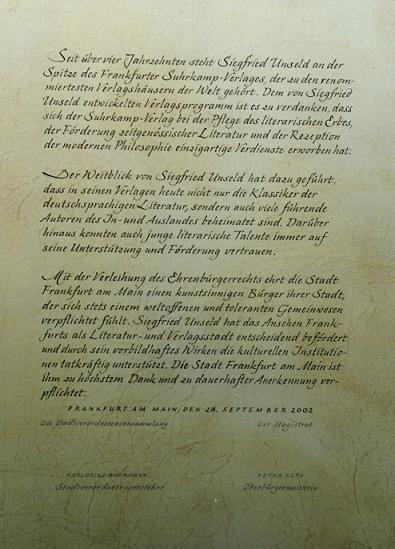 Seit über vier Jahrzehnten steht Siegfried Unseld an der
Spitze des Frankfurter Suhrkamp-Verlages, der zu den renom-
miertesten Verlagshäusern der Welt gehört. Dem von Siegfried
Unseld entwickelten Verlagsprogramm ist es zu verdanken, dass
sich der Suhrkamp-Verlag bei der Pflege des literarischen Erbes,
der Förderung zeitgenössischer Literatur und der Rezeption
der modernen Philosophie einzigartige Verdienste erworben hat.
Der Weitblick von Siegfried Unseld hat dazu geführt,
dass in seinen Verlagen heute nicht nur die Klassiker der
deutschsprachigen Literatur, sondern auch viele führende
Autoren des In- und Auslandes beheimatet sind. Darüber
hinaus konnten auch junge literarische Talente immer auf
seine Unterstützung und Förderung vertrauen.
Mit der Verleihung des Ehrenbürgerrechts ehrt die Stadt
Frankfurt am Main einen kunstsinnigen Bürger ihrer Stadt,
der sich stets einem weltoffenen und toleranten Gemeinwesen
verpflichtet fühlt. Siegfried Unseld hat das Ansehen Frank-
furts als Literatur- und Verlagsstadt entscheidend befördert
und durch sein vorbildhaftes Wirken die kulturellen Institutio-
nen tatkräftig unterstützt. Die Stadt Frankfurt am Main ist
ihm zu höchstem Dank und zu dauerhafter Anerkennung ver-
pflichtet.
FRANKFURT AM MAIN, DEN 28. SEPTEMBER 2002
Die Stadtverordnetenversammlung Der Magistrat
KARLHEINZ BÜHRMANN PETRA ROTH
Stadtverordnetenvorsteher Oberbürgermeisterin